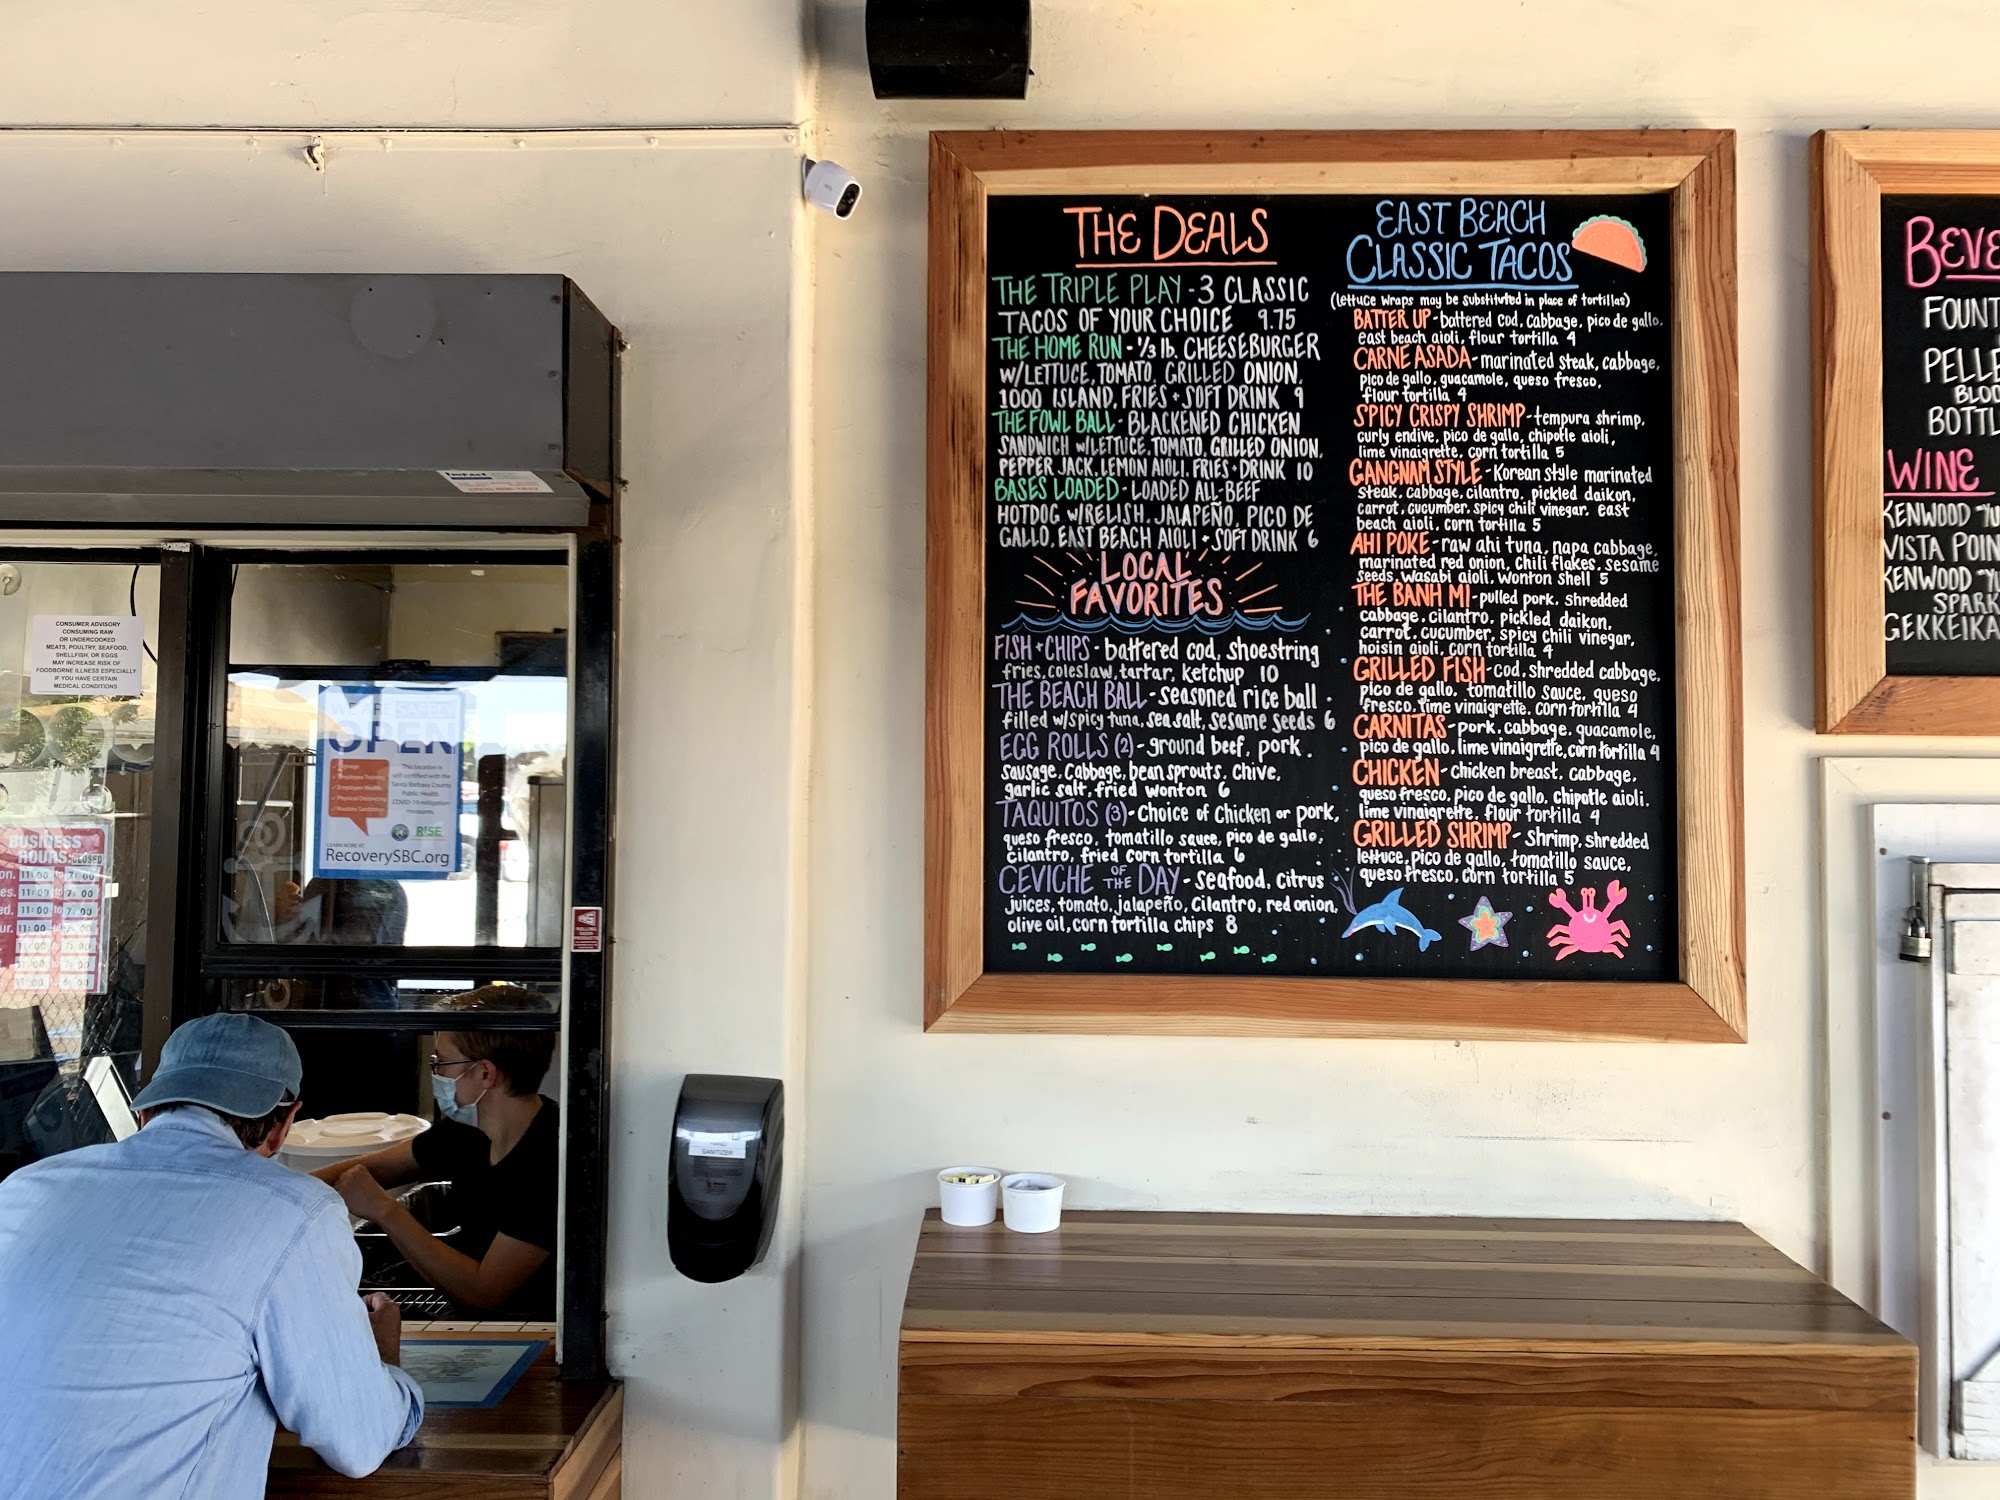 THE DEALS
THE TRIPLE PLAY - 3 CLASSIC
TACOS OF YOUR CHOICE 9.75
THE HOME RUN - 1/3 lb. CHEESEBURGER
W/LETTUCE, TOMATO, GRILLED ONION,
1000 ISLAND, FRIES + SOFT DRINK 9
THE FOWL BALL - BLACKENED CHICKEN
SANDWICH W/LETTUCE, TOMATO, GRILLED ONION,
PEPPER JACK, LEMON AIOLI, FRIES + DRINK 10
BASES LOADED - LOADED ALL-BEEF
HOTDOG W/RELISH, JALAPEÑO, PICO DE
GALLO, EAST BEACH AIOLI + SOFT DRINK 6
LOCAL
FAVORITES
FISH + CHIPS - battered cod, shoestring
fries, coleslaw, tartar, ketchup 10
THE BEACH BALL - seasoned rice ball
filled w/spicy tuna, sea salt, sesame seeds 6
EGG ROLLS (2) - ground beef, pork,
sausage, cabbage, bean sprouts, chive,
garlic salt, fried wonton 6
TAQUITOS (3) - Choice of Chicken or pork,
queso fresco, tomatillo sauce, pico de gallo,
cilantro, fried corn tortilla 6
CEVICHE OF THE DAY - seafood, citrus
juices, tomato, jalapeño, cilantro, red onion,
olive oil, corn tortilla chips 8
EAST BEACH
CLASSIC TACOS
(lettuce wraps may be substituted in place of tortillas)
BATTER UP - battered cod, cabbage, pico de gallo,
east beach aioli, flour tortilla 4
CARNE ASADA - marinated steak, cabbage,
pico de gallo, guacamole, queso fresco,
flour tortilla 4
SPICY CRISPY SHRIMP - tempura shrimp,
curly endive, pico de gallo, chipotle aioli,
lime vinaigrette, corn tortilla 5
GANGNAM STYLE - Korean style marinated
steak, cabbage, cilantro, pickled daikon,
carrot, cucumber, spicy chili vinegar, east
beach aioli, corn tortilla 5
AHI POKE - raw ahi tuna, napa cabbage,
marinated red onion, chili flakes, sesame
seeds, wasabi aioli, wonton shell 5
THE BANH MI - pulled pork, shredded
cabbage, cilantro, pickled daikon,
carrot, cucumber, spicy chili vinegar,
hoisin aioli, corn tortilla 4
GRILLED FISH - cod, shredded cabbage,
pico de gallo, tomatillo sauce, queso
fresco, lime vinaigrette, corn tortilla 4
CARNITAS - pork, cabbage, guacamole,
pico de gallo, lime vinaigrette, corn tortilla 4
CHICKEN - chicken breast, cabbage,
queso fresco, pico de gallo, chipotle aioli,
lime vinaigrette, flour tortilla 4
GRILLED SHRIMP - Shrimp, shredded
lettuce, pico de gallo, tomatillo sauce,
queso fresco, corn tortilla 5
BEVE
FOUNT
PELLE
BLOO
BOTTL
WINE
KENWOOD "YU
VISTA POIN
KENWOOD "YU
SPARK
GEKKEIKA
CONSUMER ADVISORY
CONSUMING RAW
OR UNDERCOOKED
MEATS, POULTRY, SEAFOOD,
SHELLFISH, OR EGGS
MAY INCREASE RISK OF
FOODBORNE ILLNESS ESPECIALLY
IF YOU HAVE CERTAIN
MEDICAL CONDITIONS
OPEN
Signage
Employee Training
Employee Health
Physical Distancing
Routine Sanitation
This location is
self-certified with the
Santa Barbara County
Public Health
COVID-19 mitigation
measures.
RISE
LEARN MORE AT:
RecoverySBC.org
BUSINESS
HOURS CLOSED
on. 11:00 to 7:00
es. 11:00 to 7:00
ed. 11:00 to 7:00
ur. 11:00 to 7:00
HAND
SANITIZER